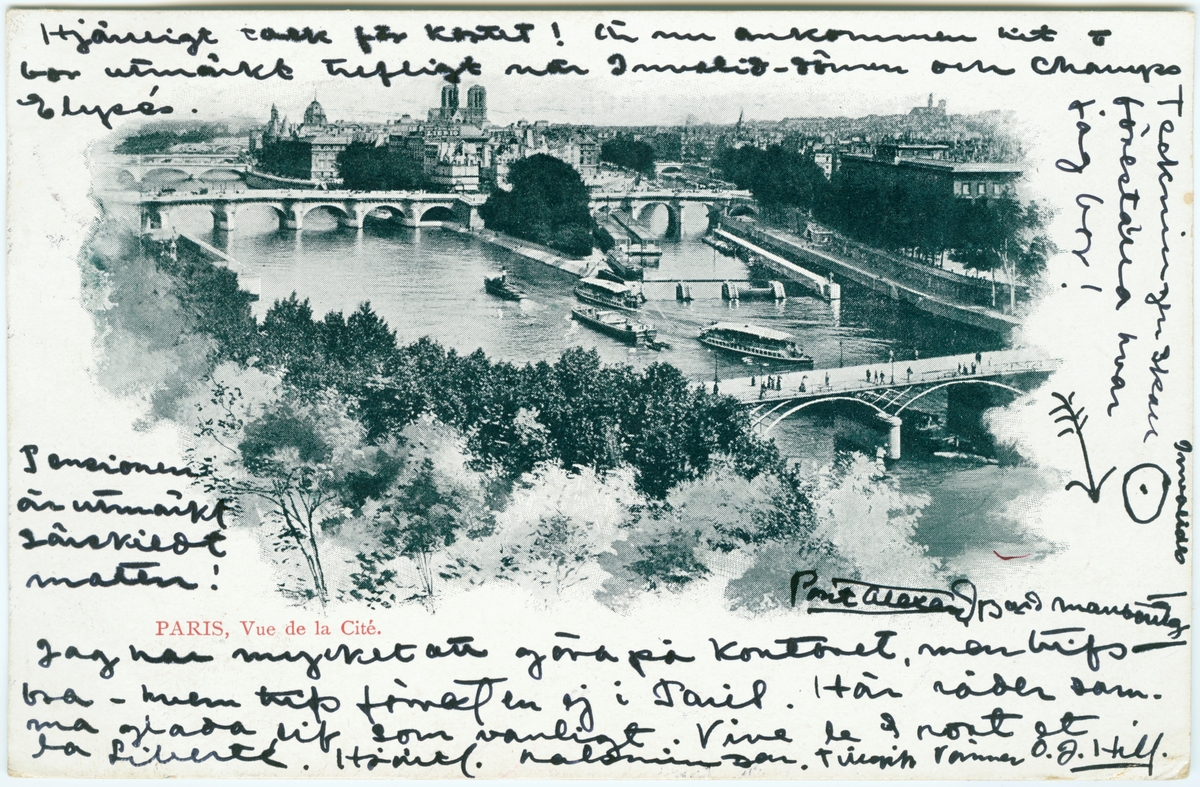 Hjärtligt tack för kortet! Är nu ankommen hit o
bor utmärkt trefligt när Invalid-dômen och Champs
Elysés.
Teckningen skall
föreställa hvar
jag bor!
Invalides
Pensionen
är utmärkt
särskildt
maten!
Pont Alexan
PARIS, Vue de la Cité.
Jag har mycket att göra på kontoret, men trifs
bra - hvem trifs förresten ej i Paris. Här råder sam-
ma glada lif som vanligt. Vive le et
la Liberté. Hjärtl. hälsningar. O. J. Hill.